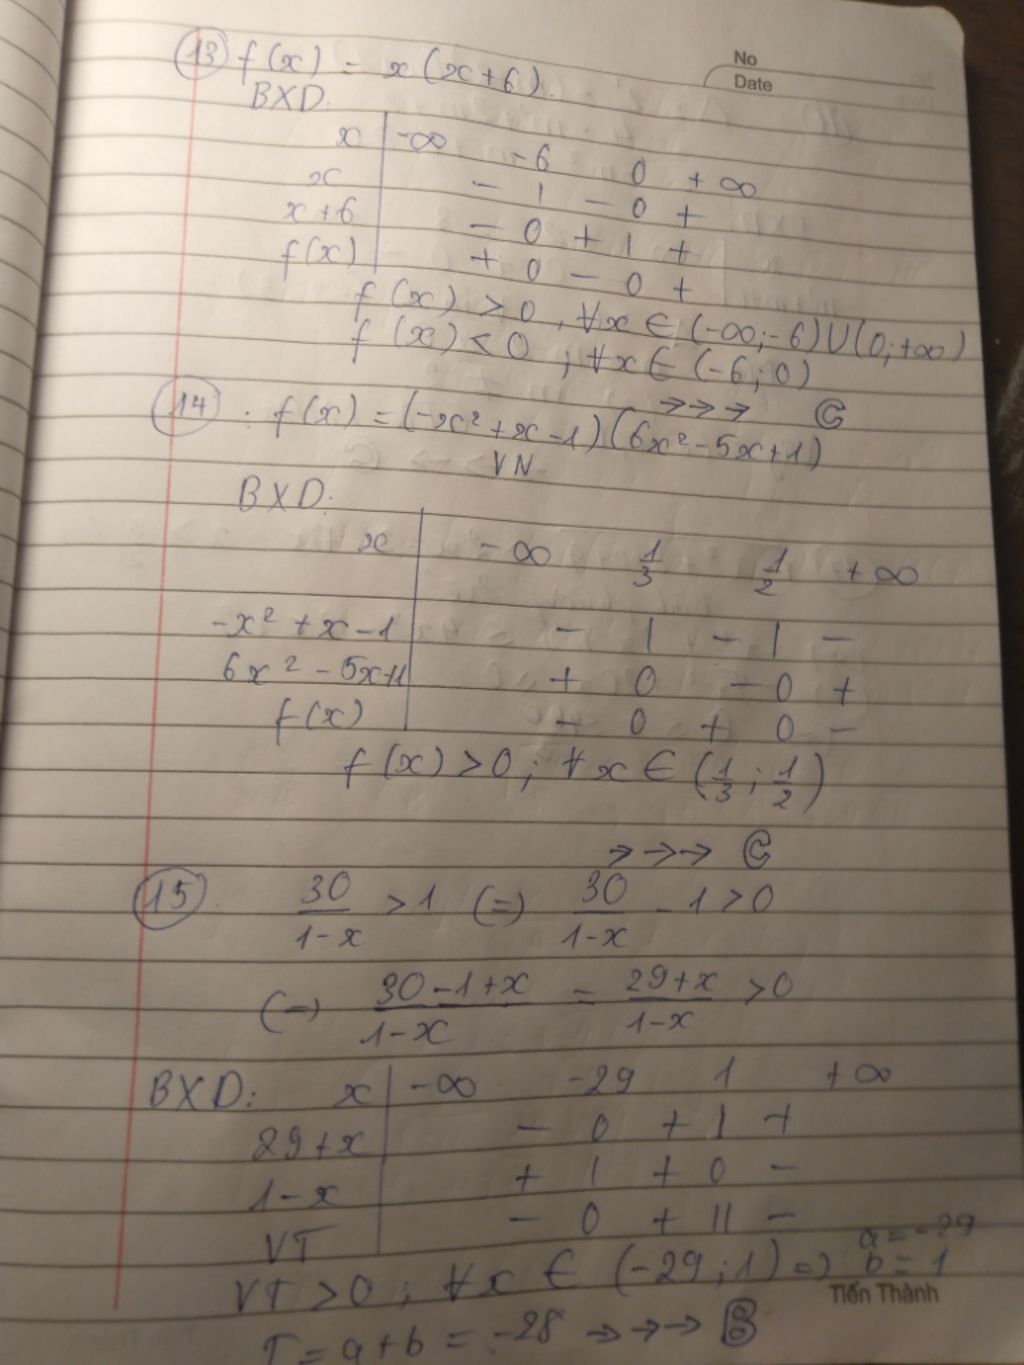 No
Date
13 f(x) = x(x+6).
BXD.
x | -∞ -6 0 +∞
x | - | - 0 +
x+6 | - 0 + | +
f(x) | + 0 - 0 +
f(x) > 0, ∀x ∈ (-∞;-6)∪(0;+∞)
f(x) < 0; ∀x ∈ (-6;0)
→→→ C
14. f(x) = (-x²+x-1)(6x²-5x+1)
VN
BXD:
x | -∞ 1/3 1/2 +∞
-x²+x-1 | - | - | -
6x²-5x+1 | + 0 - 0 +
f(x) | - 0 + 0 -
f(x) > 0; ∀x ∈ (1/3; 1/2)
→→→ C
15 30/(1-x) > 1 (=) 30/(1-x) - 1 > 0
(=) (30-1+x)/(1-x) = (29+x)/(1-x) > 0
BXD: x | -∞ -29 1 +∞
29+x | - 0 + | +
1-x | + | + 0 -
VT | - 0 + || -
VT > 0; ∀x ∈ (-29;1) => a = -29
b = 1
Tiến Thành
T = a+b = -28 →→→ B